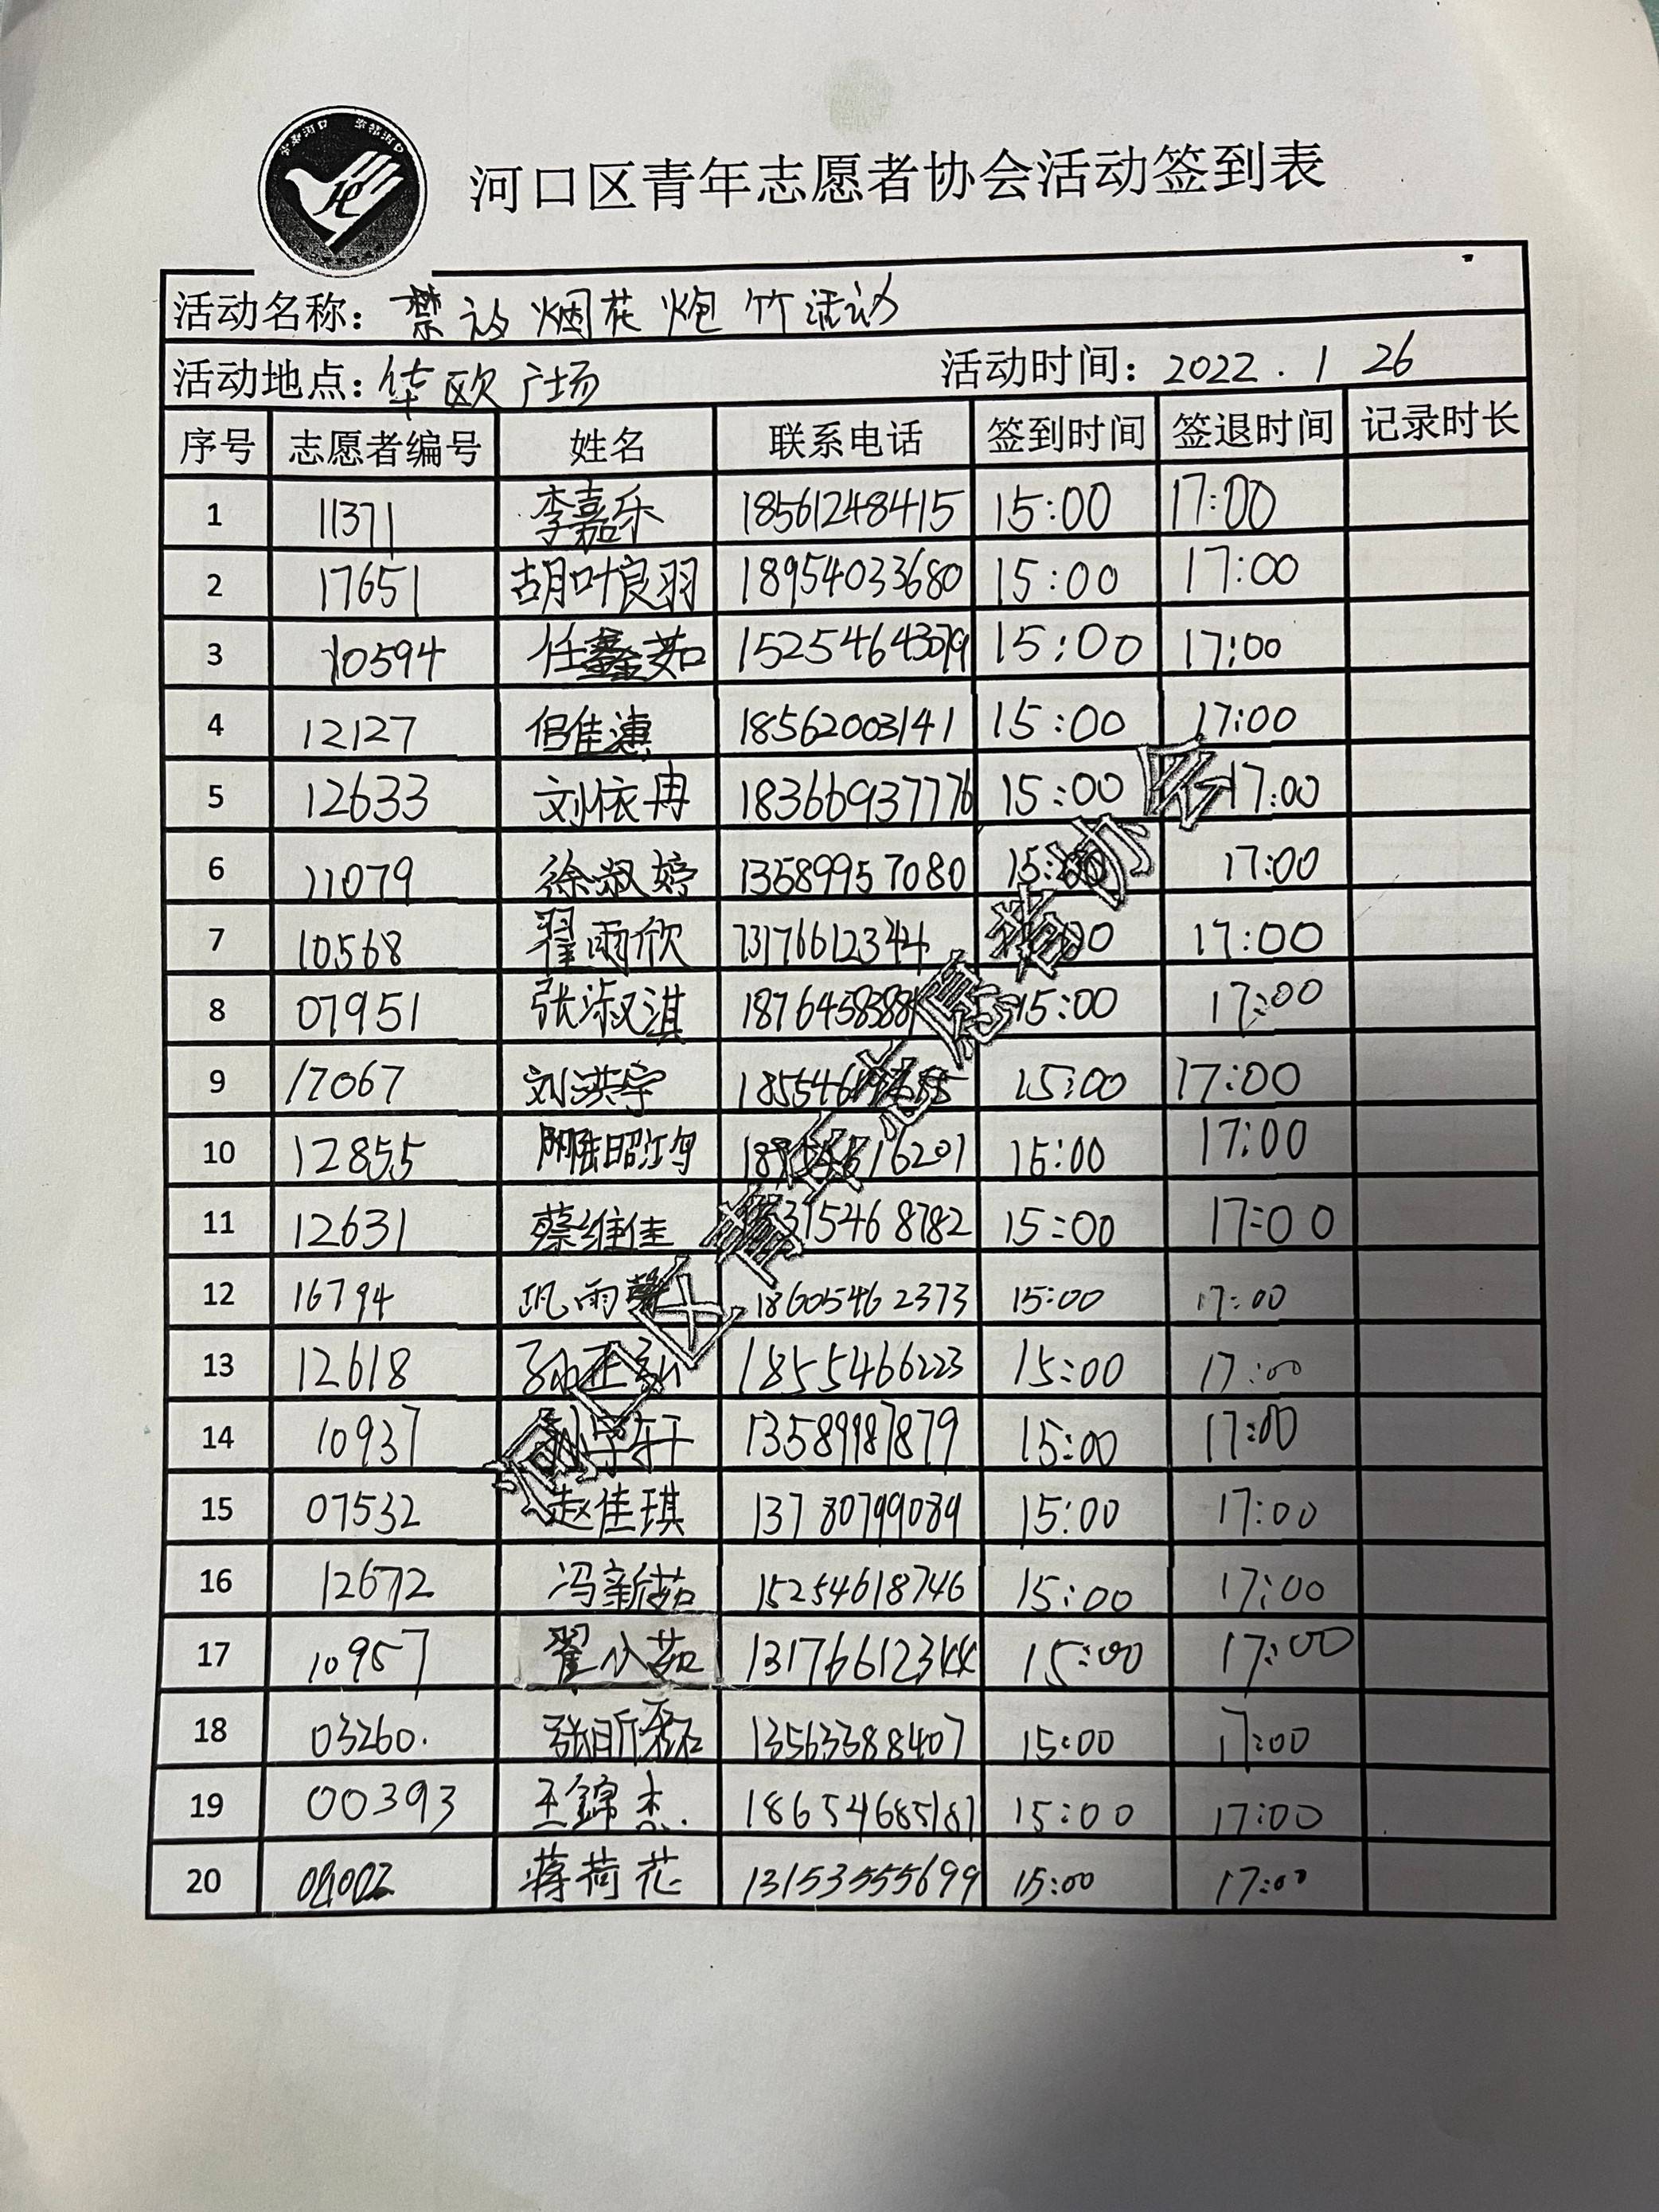 河口区青年志愿者协会活动签到表
活动名称：禁放烟花炮竹活动
活动地点：华欧广场 活动时间：2022.1 26
序号 志愿者编号 姓名 联系电话 签到时间 签退时间 记录时长
1 11371 李嘉乐 18561248415 15:00 17:00
2 17651 胡叶良羽 18954033680 15:00 17:00
3 10594 任鑫茹 15254643079 15:00 17:00
4 12127 佀佳澍 18562003141 15:00 17:00
5 12633 刘依冉 18366937776 15:00 17:00
6 11079 徐淑婷 13589957080 15:00 17:00
7 10568 翟雨欣 17:00
8 07951 张淑淇 15:00 17:00
9 17067 刘洪宇 15:00 17:00
10 12855 15:00 17:00
11 12631 蔡维佳 15:00 17:00
12 16794 巩雨馨 18605462373 15:00 17:00
13 12618 1855466223 15:00 17:00
14 10937 13589987879 15:00 17:00
15 07532 赵佳琪 13780799089 15:00 17:00
16 12672 冯新茹 15254618746 15:00 17:00
17 10957 翟小茹 13176612344 15:00 17:00
18 03260. 13563388407 15:00 17:00
19 00393 王錦杰. 18654685187 15:00 17:00
20 蒋荷花 13153555699 15:00 17:00
河口区青年志愿者协会